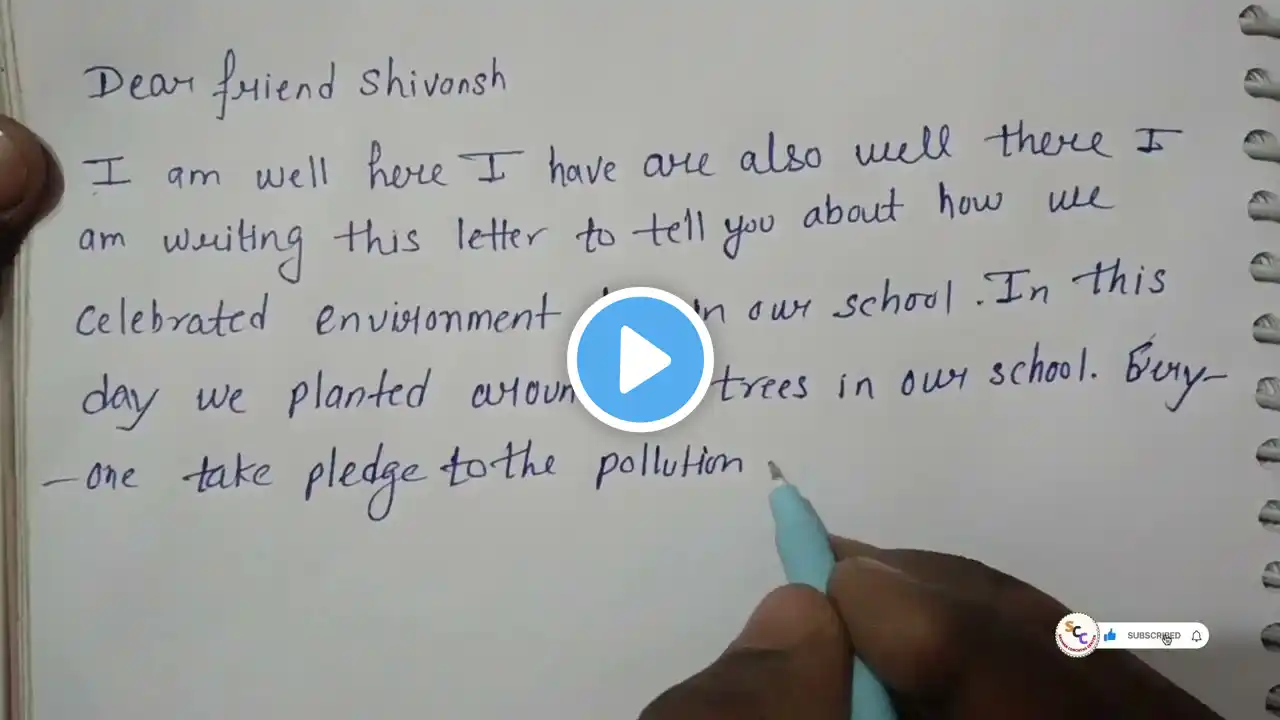 Dear friend Shivansh
I am well here I have are also well there I
am writing this letter to tell you about how we
celebrated environment in our school. In this
day we planted trees in our school. Every-
-one take pledge to the pollution
SCC
SUBSCRIBED